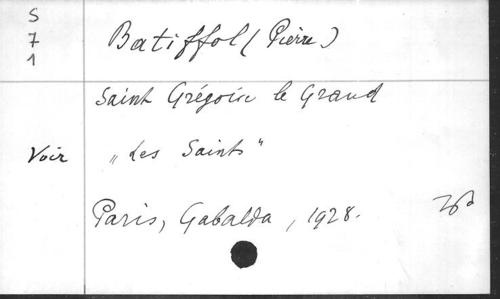 S
7
1
Batiffol (Pierre)
Saint Grégoire le Grand
Voir „Les Saints"
Paris, Gabalda, 1928.